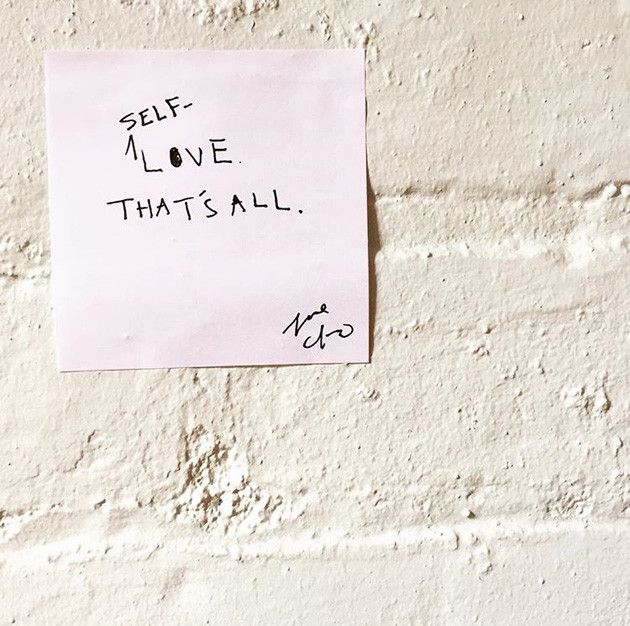 SELF-
LOVE.
THAT'S ALL.